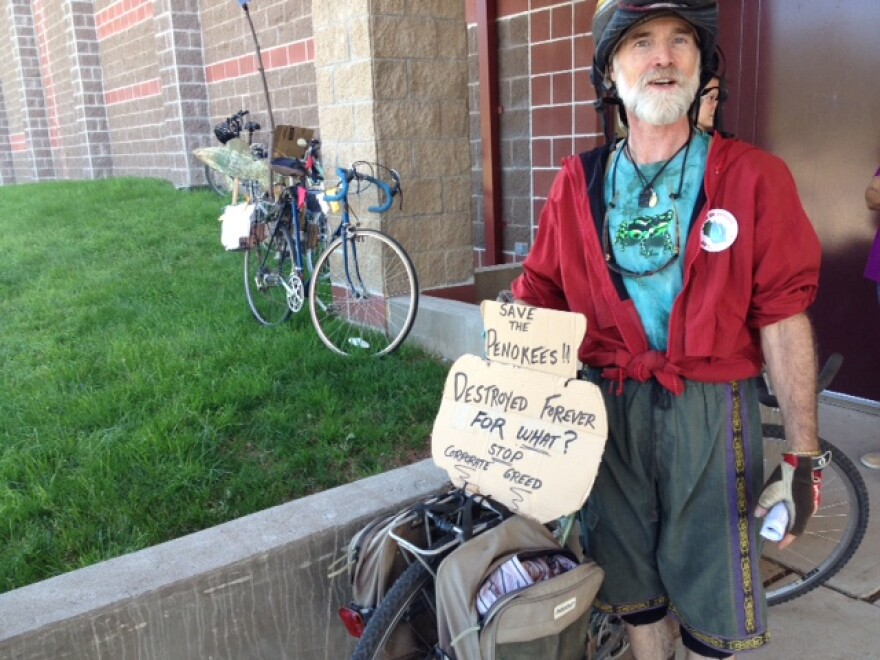 SAVE
THE
PENOKEES!!
DESTROYED FOREVER
FOR WHAT?
STOP
CORPORATE GREED